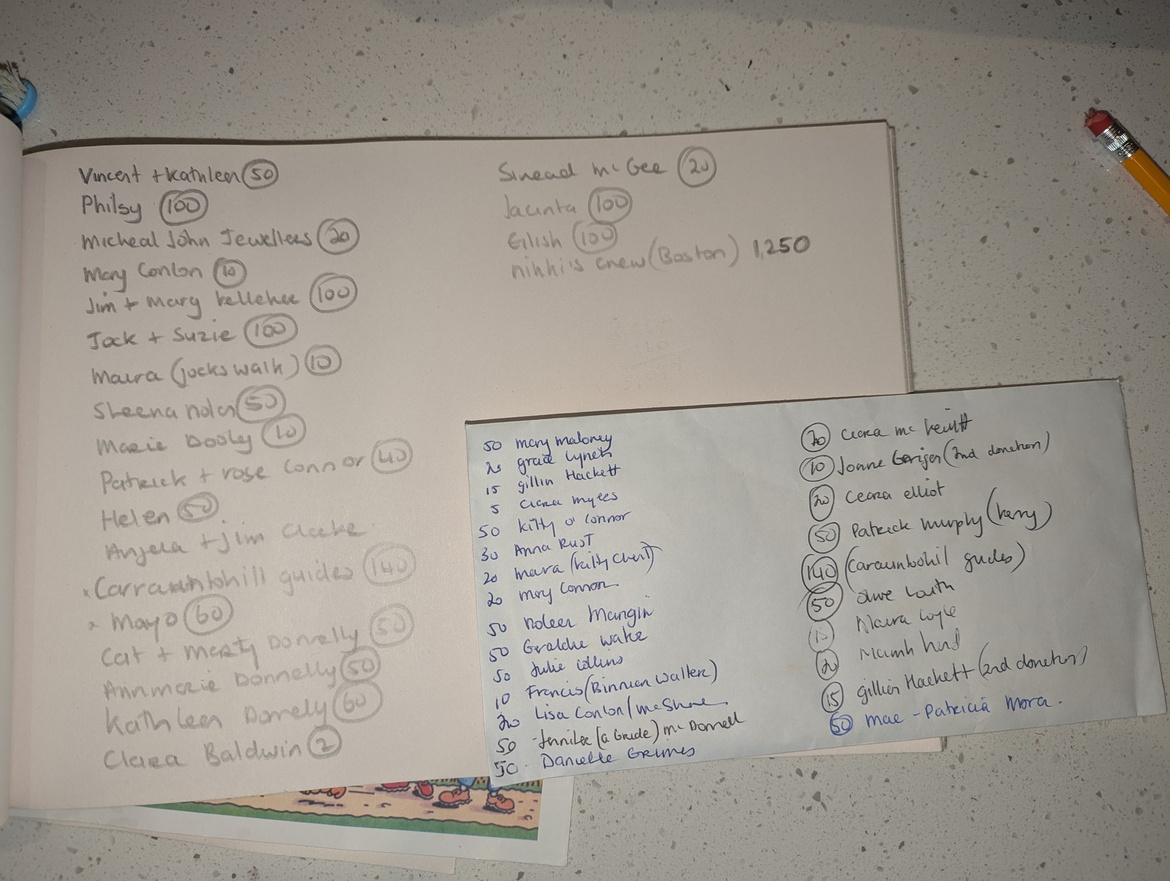 Vincent + Kathleen 50
Philsy 100
Micheal John Jewellers 20
Mary Conlon 10
Jim + Mary Kelleher 100
Jack + Suzie 100
Maura (jocks walk) 10
Sheena Nolan 50
Marie Dooly 10
Patrick + rose Connor 40
Helen 50
Angela + Jim Cleeke
x Carrauntohill guides 140
x Mayo 60
Cat + Marty Donnelly 50
Annmarie Donnelly 50
Kathleen Donnelly 60
Clara Baldwin 2
Sinead mc Gee 20
Jacinta 100
Eilish 100
nikki's crew (Boston) 1,250
50 mary maloney
20 grace Lynch
15 gillin Hackett
5 Ciara myles
50 Kitty o' Connor
30 Anna Rust
20 mara
20 may Connor
50 Noleen Mangin
50 Geraldine wake
50 Julie Collins
10 Francis (Binnion Walker)
20 Lisa Conlon / mcShane
50 Jennifer (a Guide) mc Donnell
50 Danielle Grimes
20 Ciara mc
10 Joanne (2nd donation)
20 Ceara elliot
50 Patrick murphy
140 (Carauntohil guides)
50
10 Maura Coyle
20 Niamh
15 gillin Hackett (2nd donation)
50 mae - Patricia Mora.